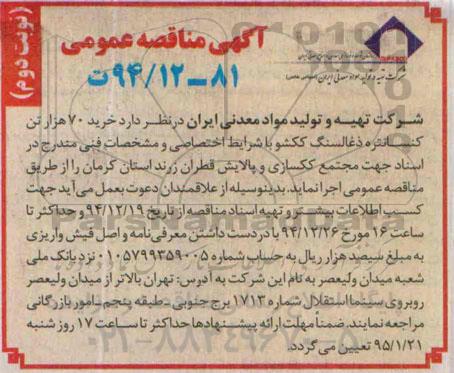 (نوبت دوم)
آگهی مناقصه عمومی
۸۱–۹۴/۱۲ت
شرکت تهیه و تولید مواد معدنی ایران
شرکت تهیه و تولید مواد معدنی ایران درنظر دارد خرید ۷۰ هزار تن
کنسانتره ذغالسنگ ککشو با شرایط اختصاصی و مشخصات فنی مندرج در
اسناد جهت مجتمع ککسازی و پالایش قطران زرند استان کرمان را از طریق
مناقصه عمومی اجرا نماید. بدینوسیله از علاقمندان دعوت بعمل می‌آید جهت
کسب اطلاعات بیشتر و تهیه اسناد مناقصه از تاریخ ۹۴/۱۲/۱۹ و حداکثر تا
ساعت ۱۶ مورخ ۹۴/۱۲/۲۶ با در دست داشتن معرفی‌نامه و اصل فیش واریزی
به مبلغ سیصد هزار ریال به حساب شماره ۰۱۰۵۷۹۹۳۵۹۰۰۵ نزد بانک ملی
شعبه میدان ولیعصر به نام این شرکت به آدرس: تهران بالاتر از میدان ولیعصر
روبروی سینما استقلال شماره ۱۷۱۳ برج جنوبی-طبقه پنجم-امور بازرگانی
مراجعه نمایند. ضمناً مهلت ارائه پیشنهادها حداکثر تا ساعت ۱۷ روز شنبه
۹۵/۱/۲۱ تعیین می گردد.